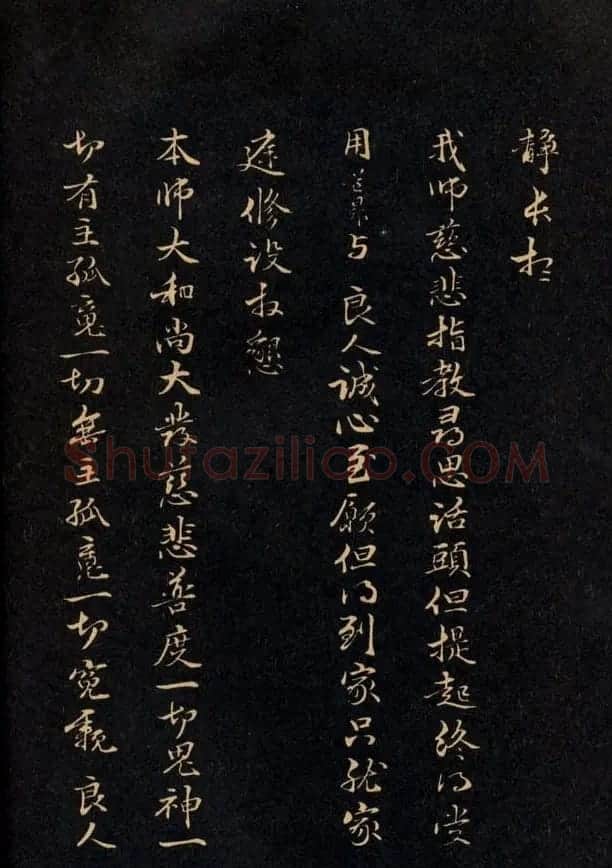 静长想
我师慈悲指教尋思话頭但提起终得受
用道杲与良人诚心至願但得到家只就家
庭修设拜懇
本师大和尚大發慈悲普度一切鬼神一
切有主孤魂一切無主孤魂一切冤親良人
Shufaziliao.COM